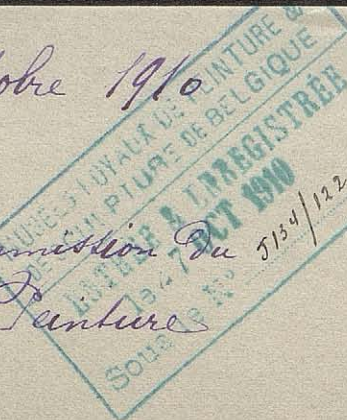 obre 1910
MUSÉES ROYAUX DE PEINTURE &
DE SCULPTURE DE BELGIQUE
ENTRÉE & ENREGISTRÉE
le 7 OCT 1910
Sous le N° 5134/122
mission du
Peinture